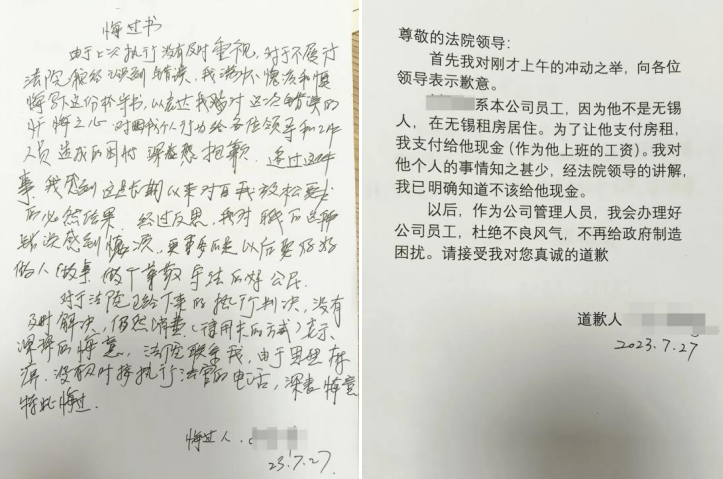 悔过书
由于上次执行没有及时重视,对于不履行
法院
错误,我满怀愧疚和懊
悔写下这份检讨书,以表达我对这次错误的
悔之心 对因我个人行为给各位领导和工作
人员造成的困扰 深感抱歉.通过这件
事,我感到这是长期以来对自我放松要求
的必然结果.经过反思,我对我的这种
错误感到愧疚,更重要的是以后要好好
做人做事 做个尊敬守法的好公民.
对于法院已给下来的执行判决,没有
及时解决,仍然消费(信用卡的方式)表示
深深的悔意,法院联系我,由于思想存
没有及时接执行法官的电话,深表悔意
特此悔过.
悔过人.
23.7.27
尊敬的法院领导:
首先我对刚才上午的冲动之举,向各位
领导表示歉意。
系本公司员工,因为他不是无锡
人,在无锡租房居住。为了让他支付房租,
我支付给他现金(作为他上班的工资)。我对
他个人的事情知之甚少,经法院领导的讲解,
我已明确知道不该给他现金。
以后,作为公司管理人员,我会办理好
公司员工,杜绝不良风气,不再给政府制造
困扰。请接受我对您真诚的道歉
道歉人
2023.7.27